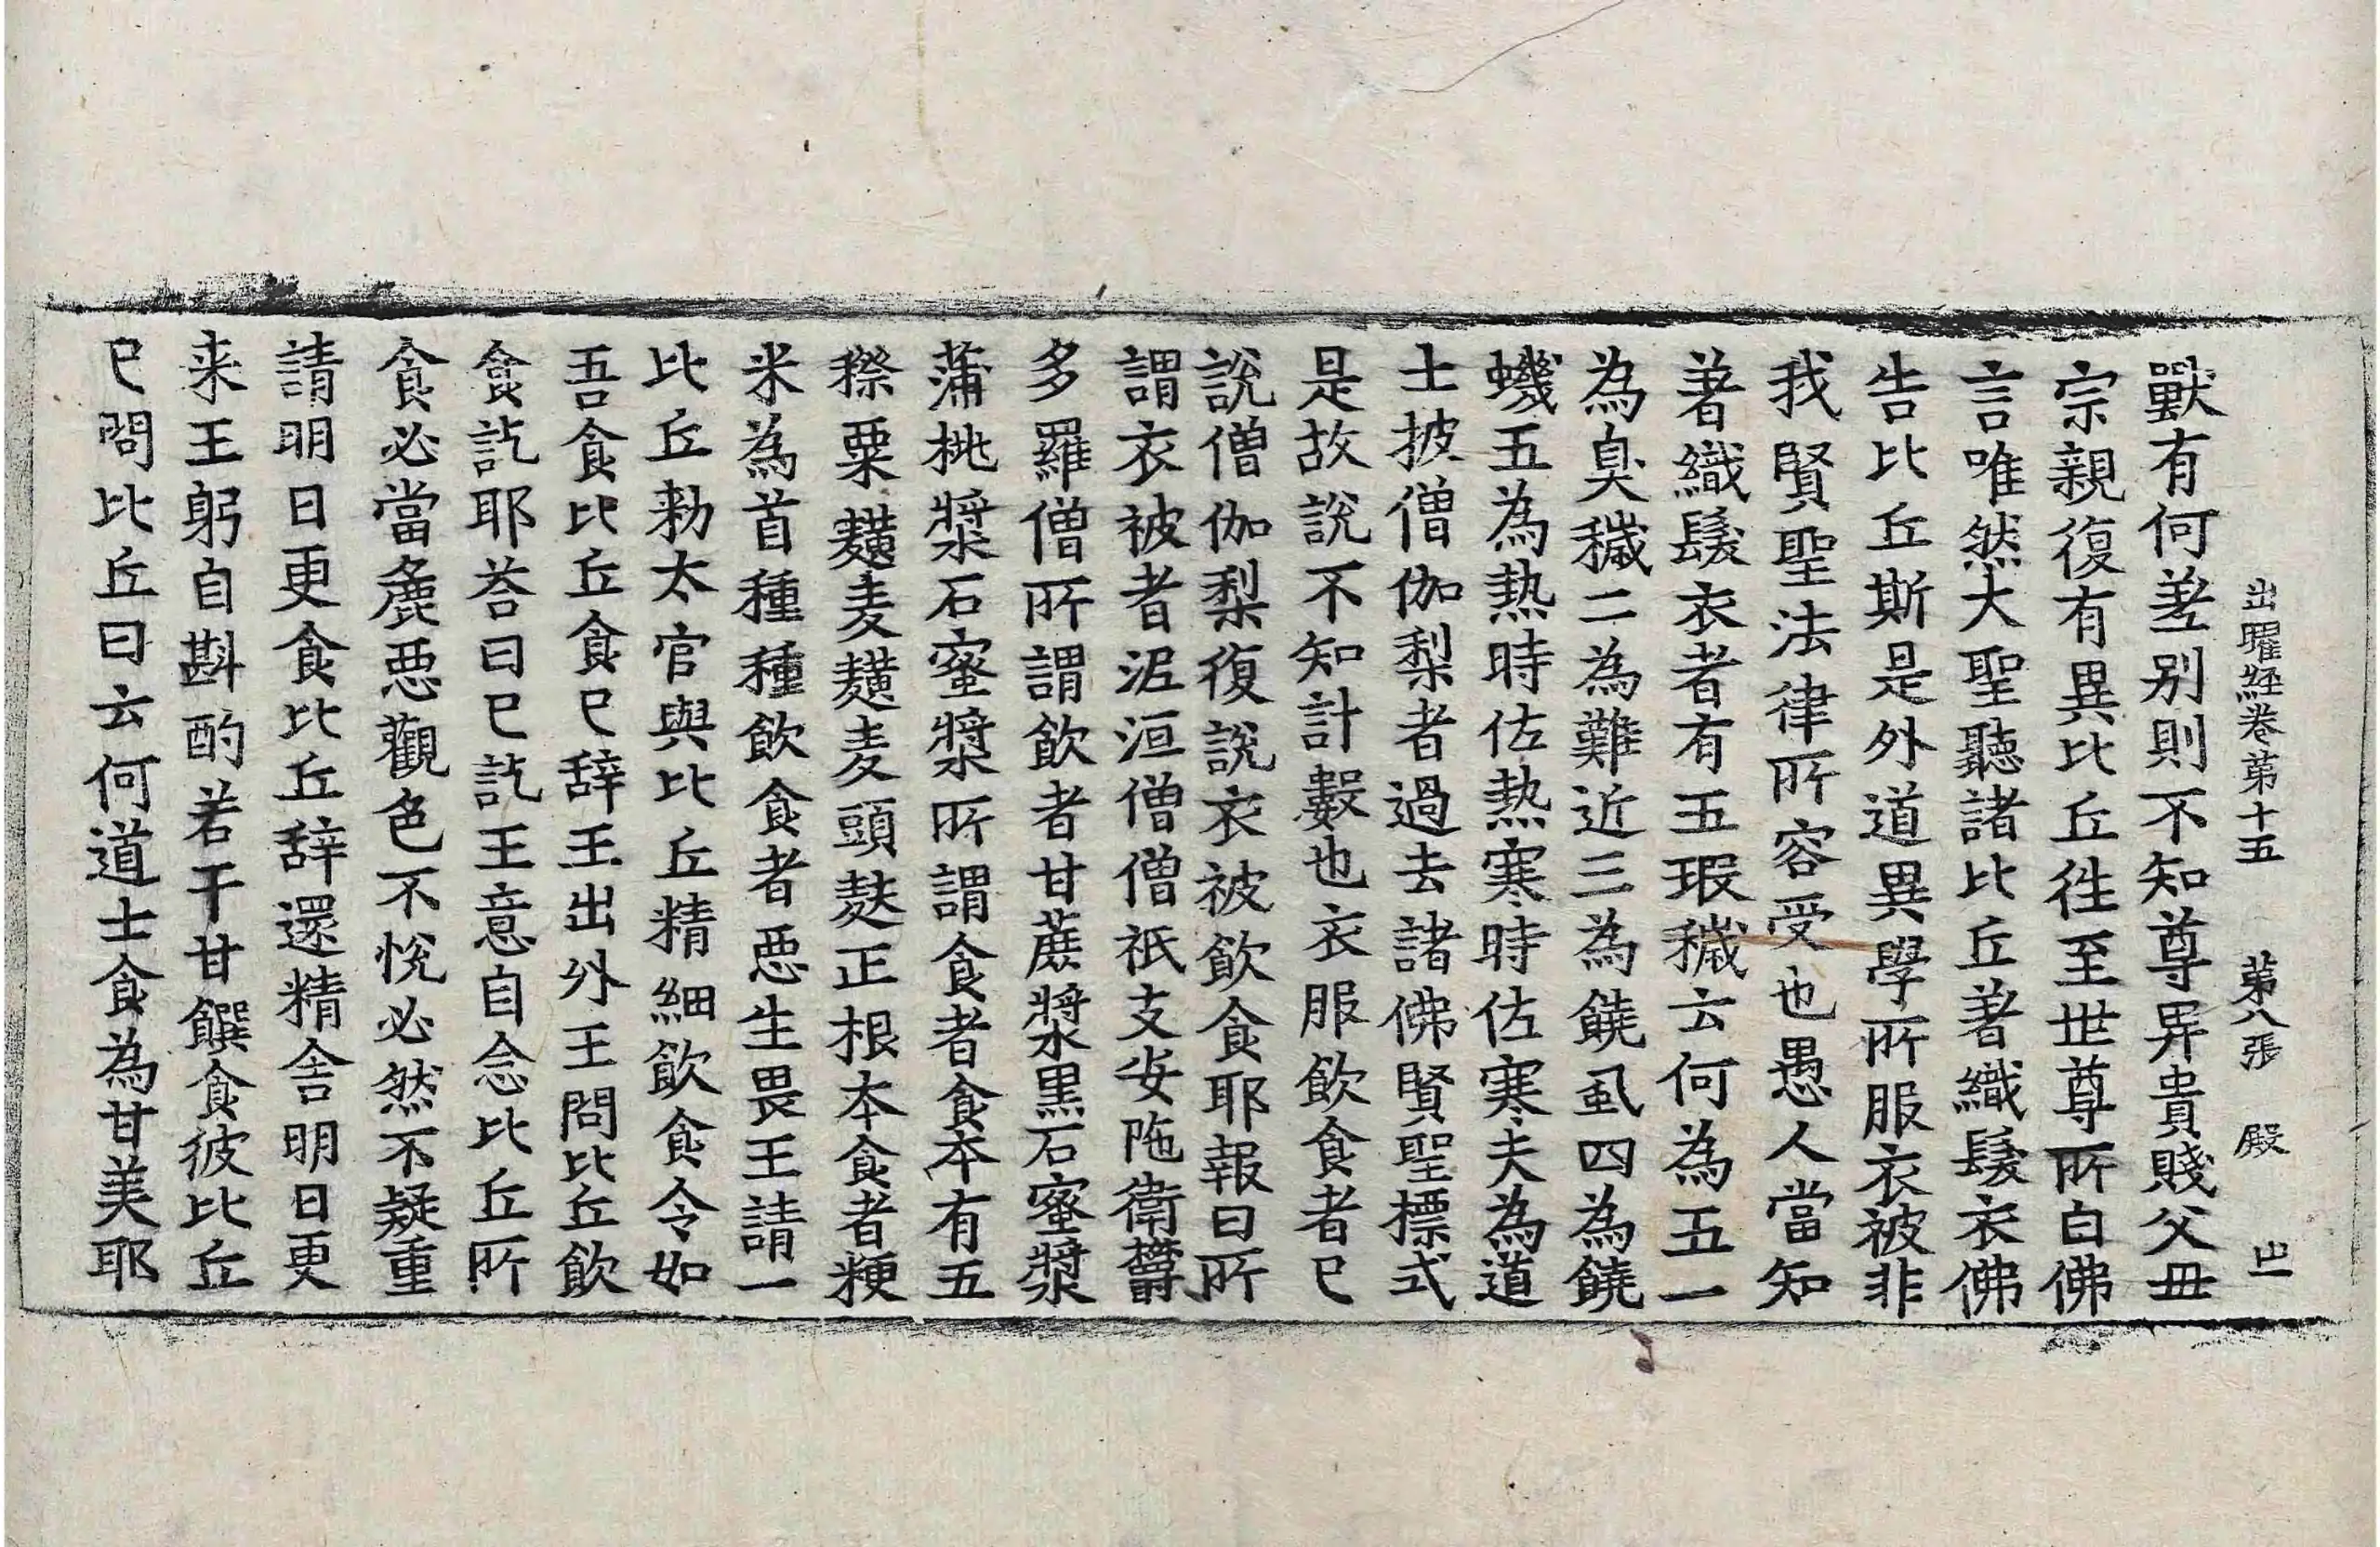 出曜經卷第十五 第八張 殿
獸有何差别則不知尊卑貴賤父母
宗親復有異比丘徃至世尊所白佛
言唯然大聖聽諸比丘著織髮衣佛
告比丘斯是外道異學所服衣被非
我賢聖法律所容受也愚人當知
著織髮衣者有五瑕穢云何為五一
為臭穢二為難近三為饒虱四為饒
蟣五為熱時佐熱寒時佐寒夫為道
士披僧伽梨者過去諸佛賢聖摽式
是故說不知計數也衣服飲食者已
說僧伽梨復說衣被飲食耶報曰所
謂衣被者泥洹僧僧祇支安陁衛欝
多羅僧所謂飲者甘蔗漿黒石蜜漿
蒲桃漿石蜜漿所謂食者食本有五
穄粟䵃麦䵃麦頭麩正根本食者粳
米為首種種飲食者惡生畏王請一
比丘勑太官與比丘精細飲食令如
吾食比丘食已辞王出外王問比丘飲
食訖耶荅曰已訖王意自念比丘所
食必當麁惡觀色不悅必然不疑重
請明日更食比丘辞還精舍明日更
来王躬自斟酌若干甘饌食彼比丘
已問比丘曰云何道士食為甘美耶